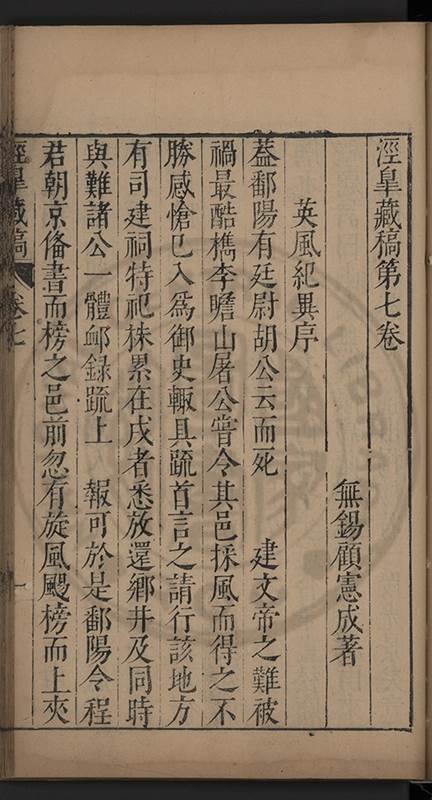 涇臯藏稿第七卷
無錫顧憲成著
英風紀異序
葢鄱陽有廷尉胡公云而死　建文帝之難被
禍最酷檇李瞻山屠公嘗令其邑採風而得之不
勝感愴已入爲御史輙具疏首言之請行該地方
有司建祠特祀株累在戍者悉放還鄉井及同時
與難諸公一體䘏錄疏上　報可於是鄱陽令程
君朝京俻書而榜之邑前忽有旋風颺榜而上夾
涇臯藏稿　卷七　一